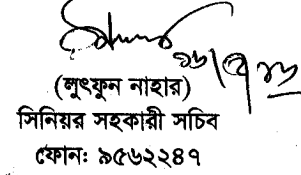 (লুৎফুন নাহার)
সিনিয়র সহকারী সচিব
ফোনঃ ৯৫৬২২৪৭